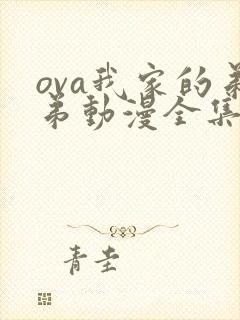 ova我家的弟
弟動漫全集
青圭